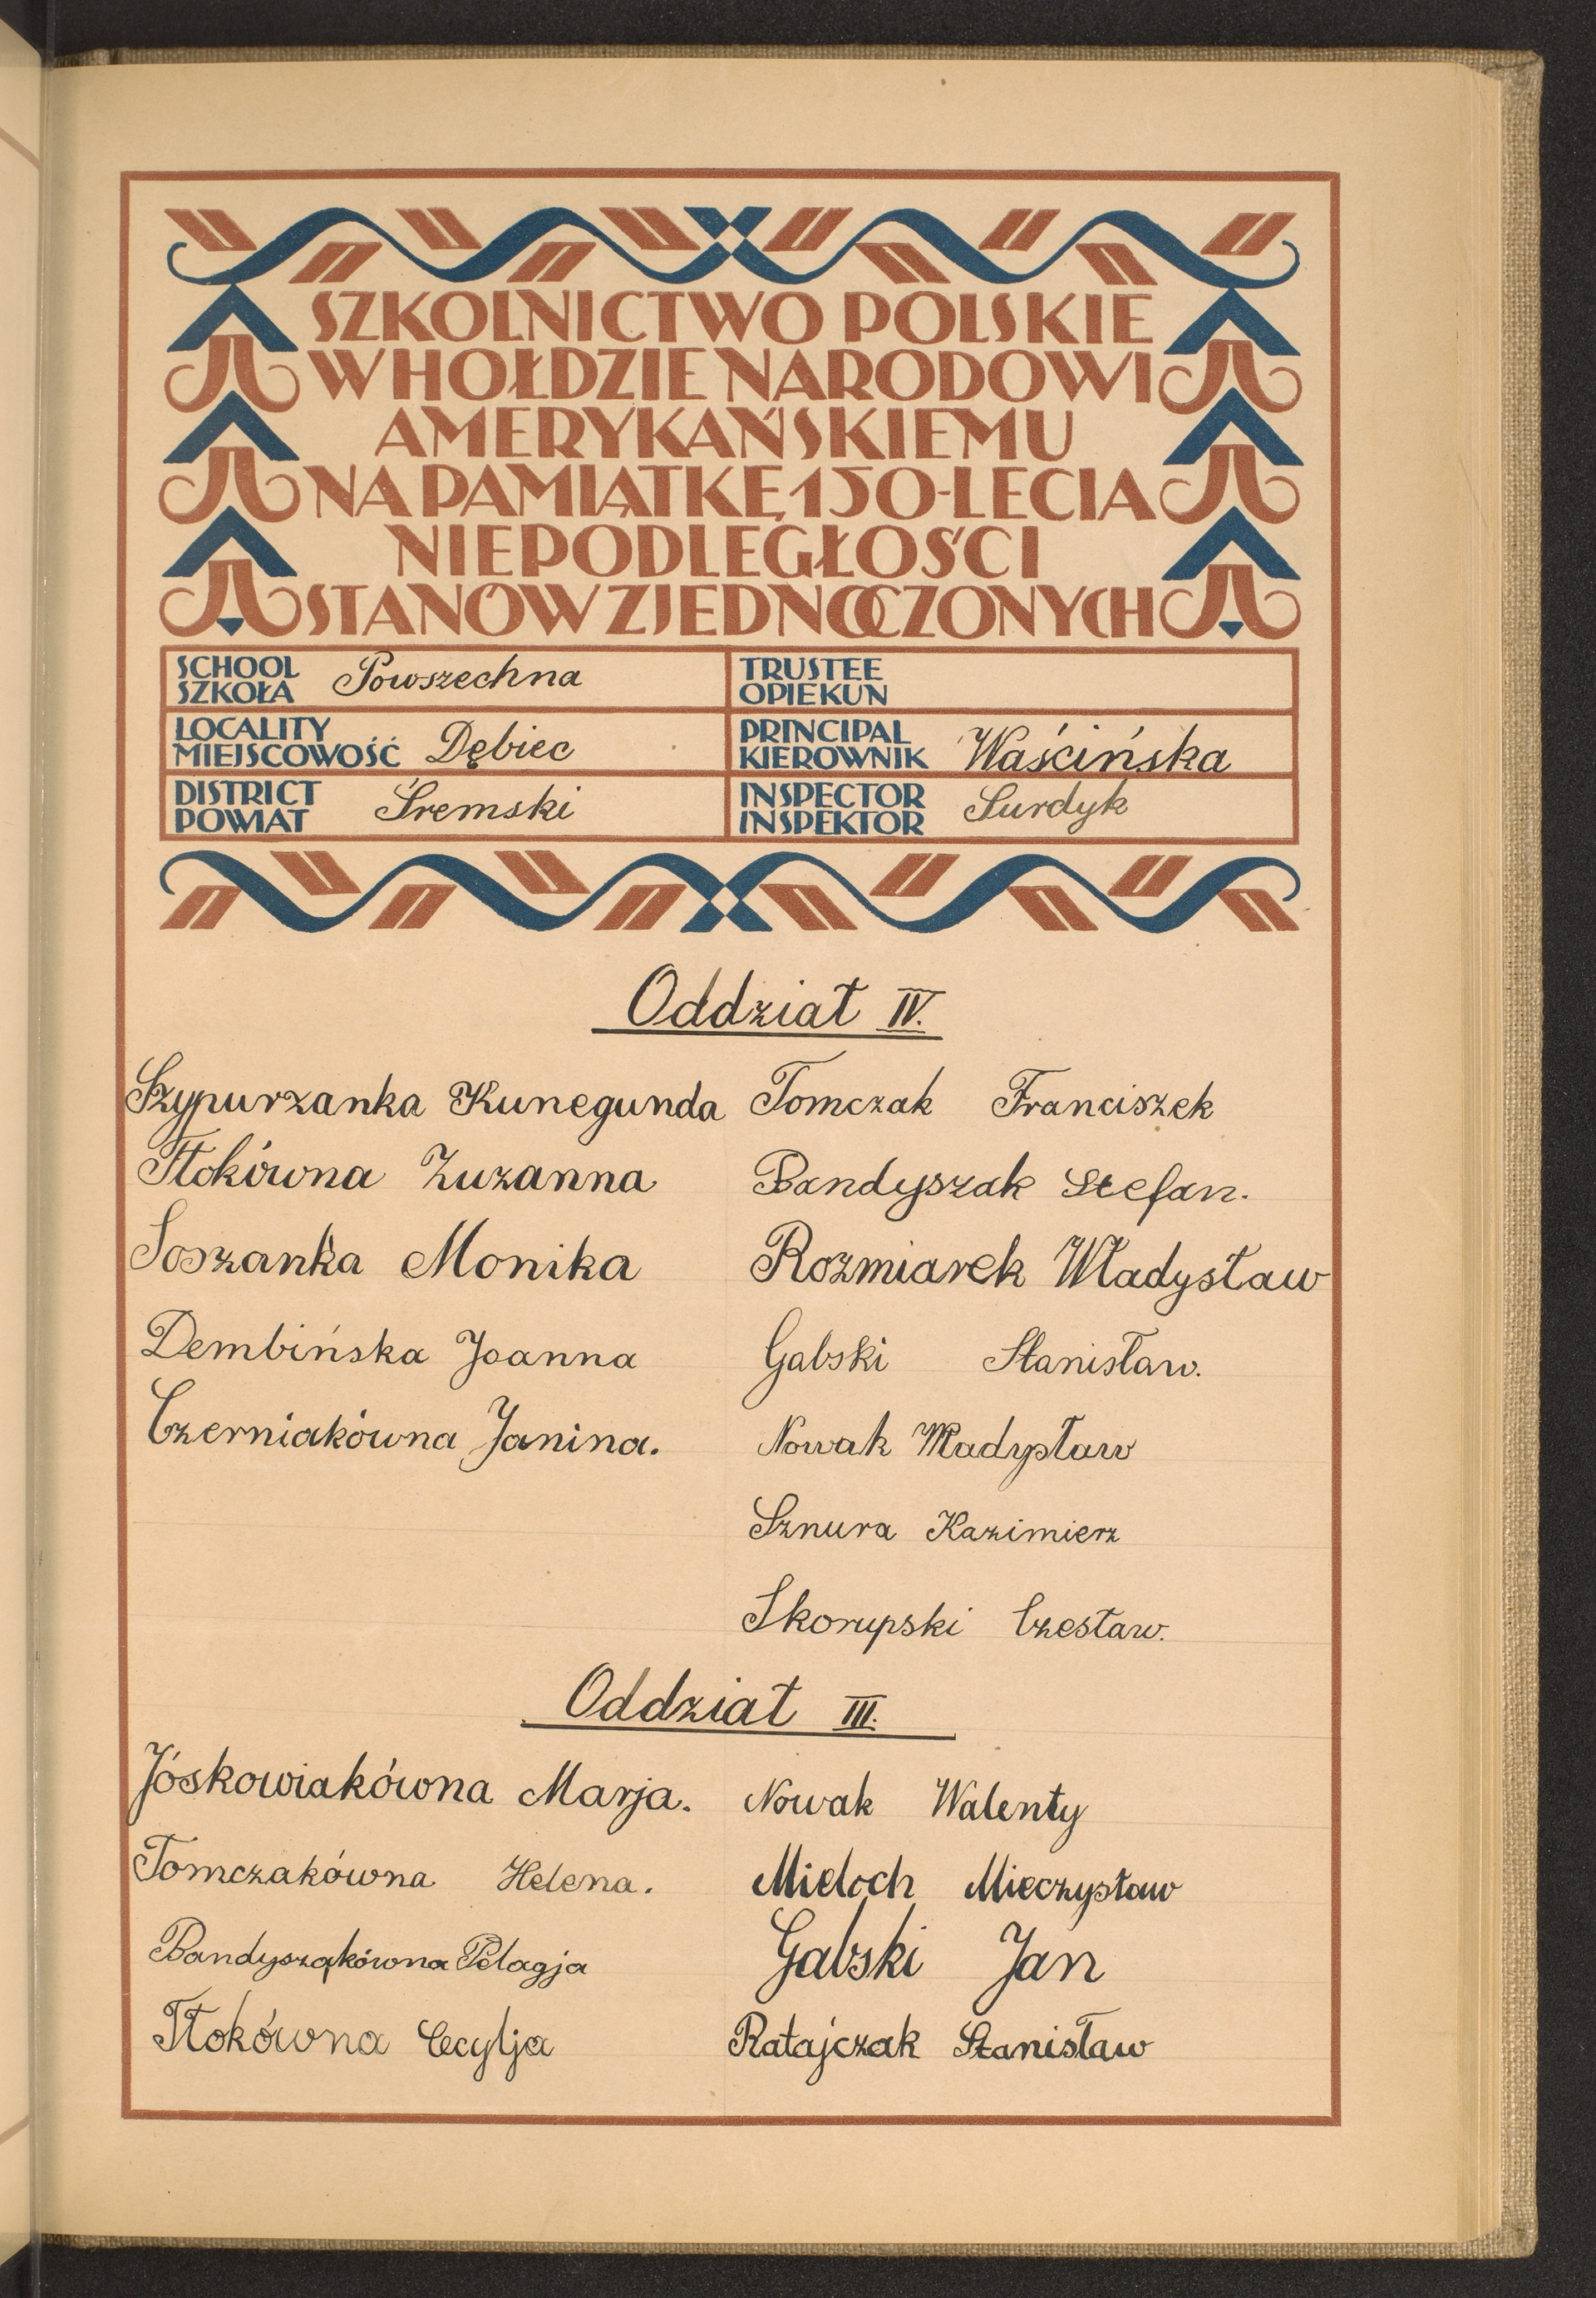 SZKOLNICTWO POLSKIE
W HOŁDZIE NARODOWI
AMERYKAŃSKIEMU
NA PAMIĄTKĘ 150-LECIA
NIEPODLEGŁOŚCI
STANÓW ZJEDNOCZONYCH
SCHOOL
SZKOŁA Powszechna
TRUSTEE
OPIEKUN
LOCALITY
MIEJSCOWOŚĆ Dębiec
PRINCIPAL
KIEROWNIK Waścińska
DISTRICT
POWIAT Śremski
INSPECTOR
INSPEKTOR Surdyk
Oddział IV.
Szypurzanka Kunegunda
Tłokówna Zuzanna
Soszanka Monika
Dembińska Joanna
Czerniakówna Janina.
Tomczak Franciszek
Bandyszak Stefan.
Rozmiarek Władysław
Gabski Stanisław.
Nowak Władysław
Sznura Kazimierz
Skorupski Czesław.
Oddział III.
Jóskowiakówna Marja.
Tomczakówna Helena.
Bandyszakówna Pelagja
Tłokówna Cecylja
Nowak Walenty
Mieloch Mieczysław
Gabski Jan
Ratajczak Stanisław